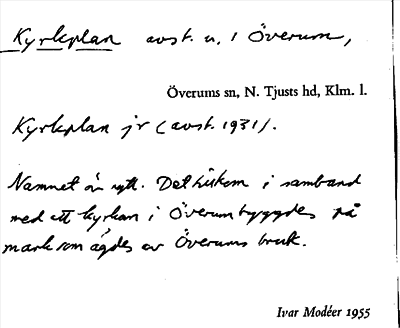 Kyrkplan avst. u. i Överum,
Överums sn, N. Tjusts hd, Klm. l.
Kyrkplan jr (avst. 1931).
Namnet är nytt. Det tillkom i samband
med att kyrkan i Överum byggdes på
mark som ägdes av Överums bruk.
Ivar Modéer 1955